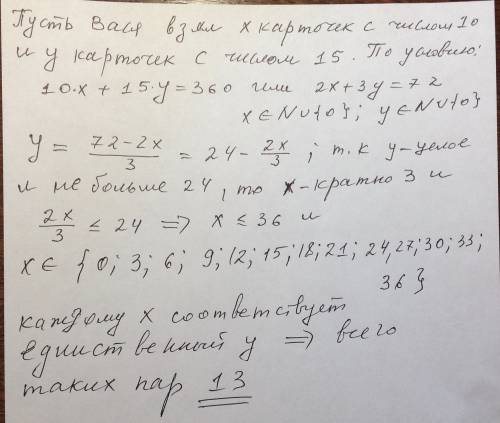 Пусть Вася взял x карточек с числом 10
и y карточек с числом 15. По условию:
10·x + 15·y = 360 или 2x + 3y = 72
x ∈ N∪{0}; y ∈ N∪{0}
y = \frac{72-2x}{3} = 24 - \frac{2x}{3}; т.к y-целое
и не больше 24, то x-кратно 3 и
\frac{2x}{3} ≤ 24 ⇒ x ≤ 36 и
x ∈ {0; 3; 6; 9; 12; 15; 18; 21; 24, 27; 30; 33;
36}
каждому x соответствует
единственный y ⇒ всего
таких пар 13